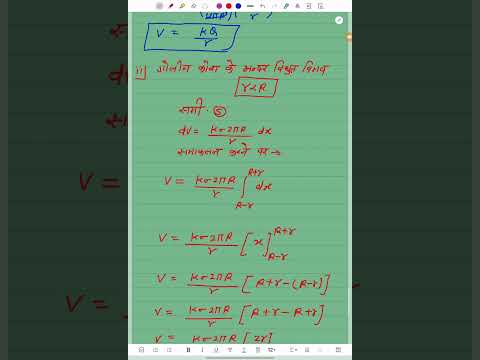 V = kQ/r
ii) गोलीय कोश के अन्दर विद्युत विभव
r<R
समी. ⑤
dV = kσ2πR/r dx
समाकलन करने पर →
V = kσ2πR/r ∫_{R-r}^{R+r} dx
V = kσ2πR/r [x]_{R-r}^{R+r}
V = kσ2πR/r [R+r-(R-r)]
V = kσ2πR/r [R+r-R+r]
V = kσ2πR [2r]